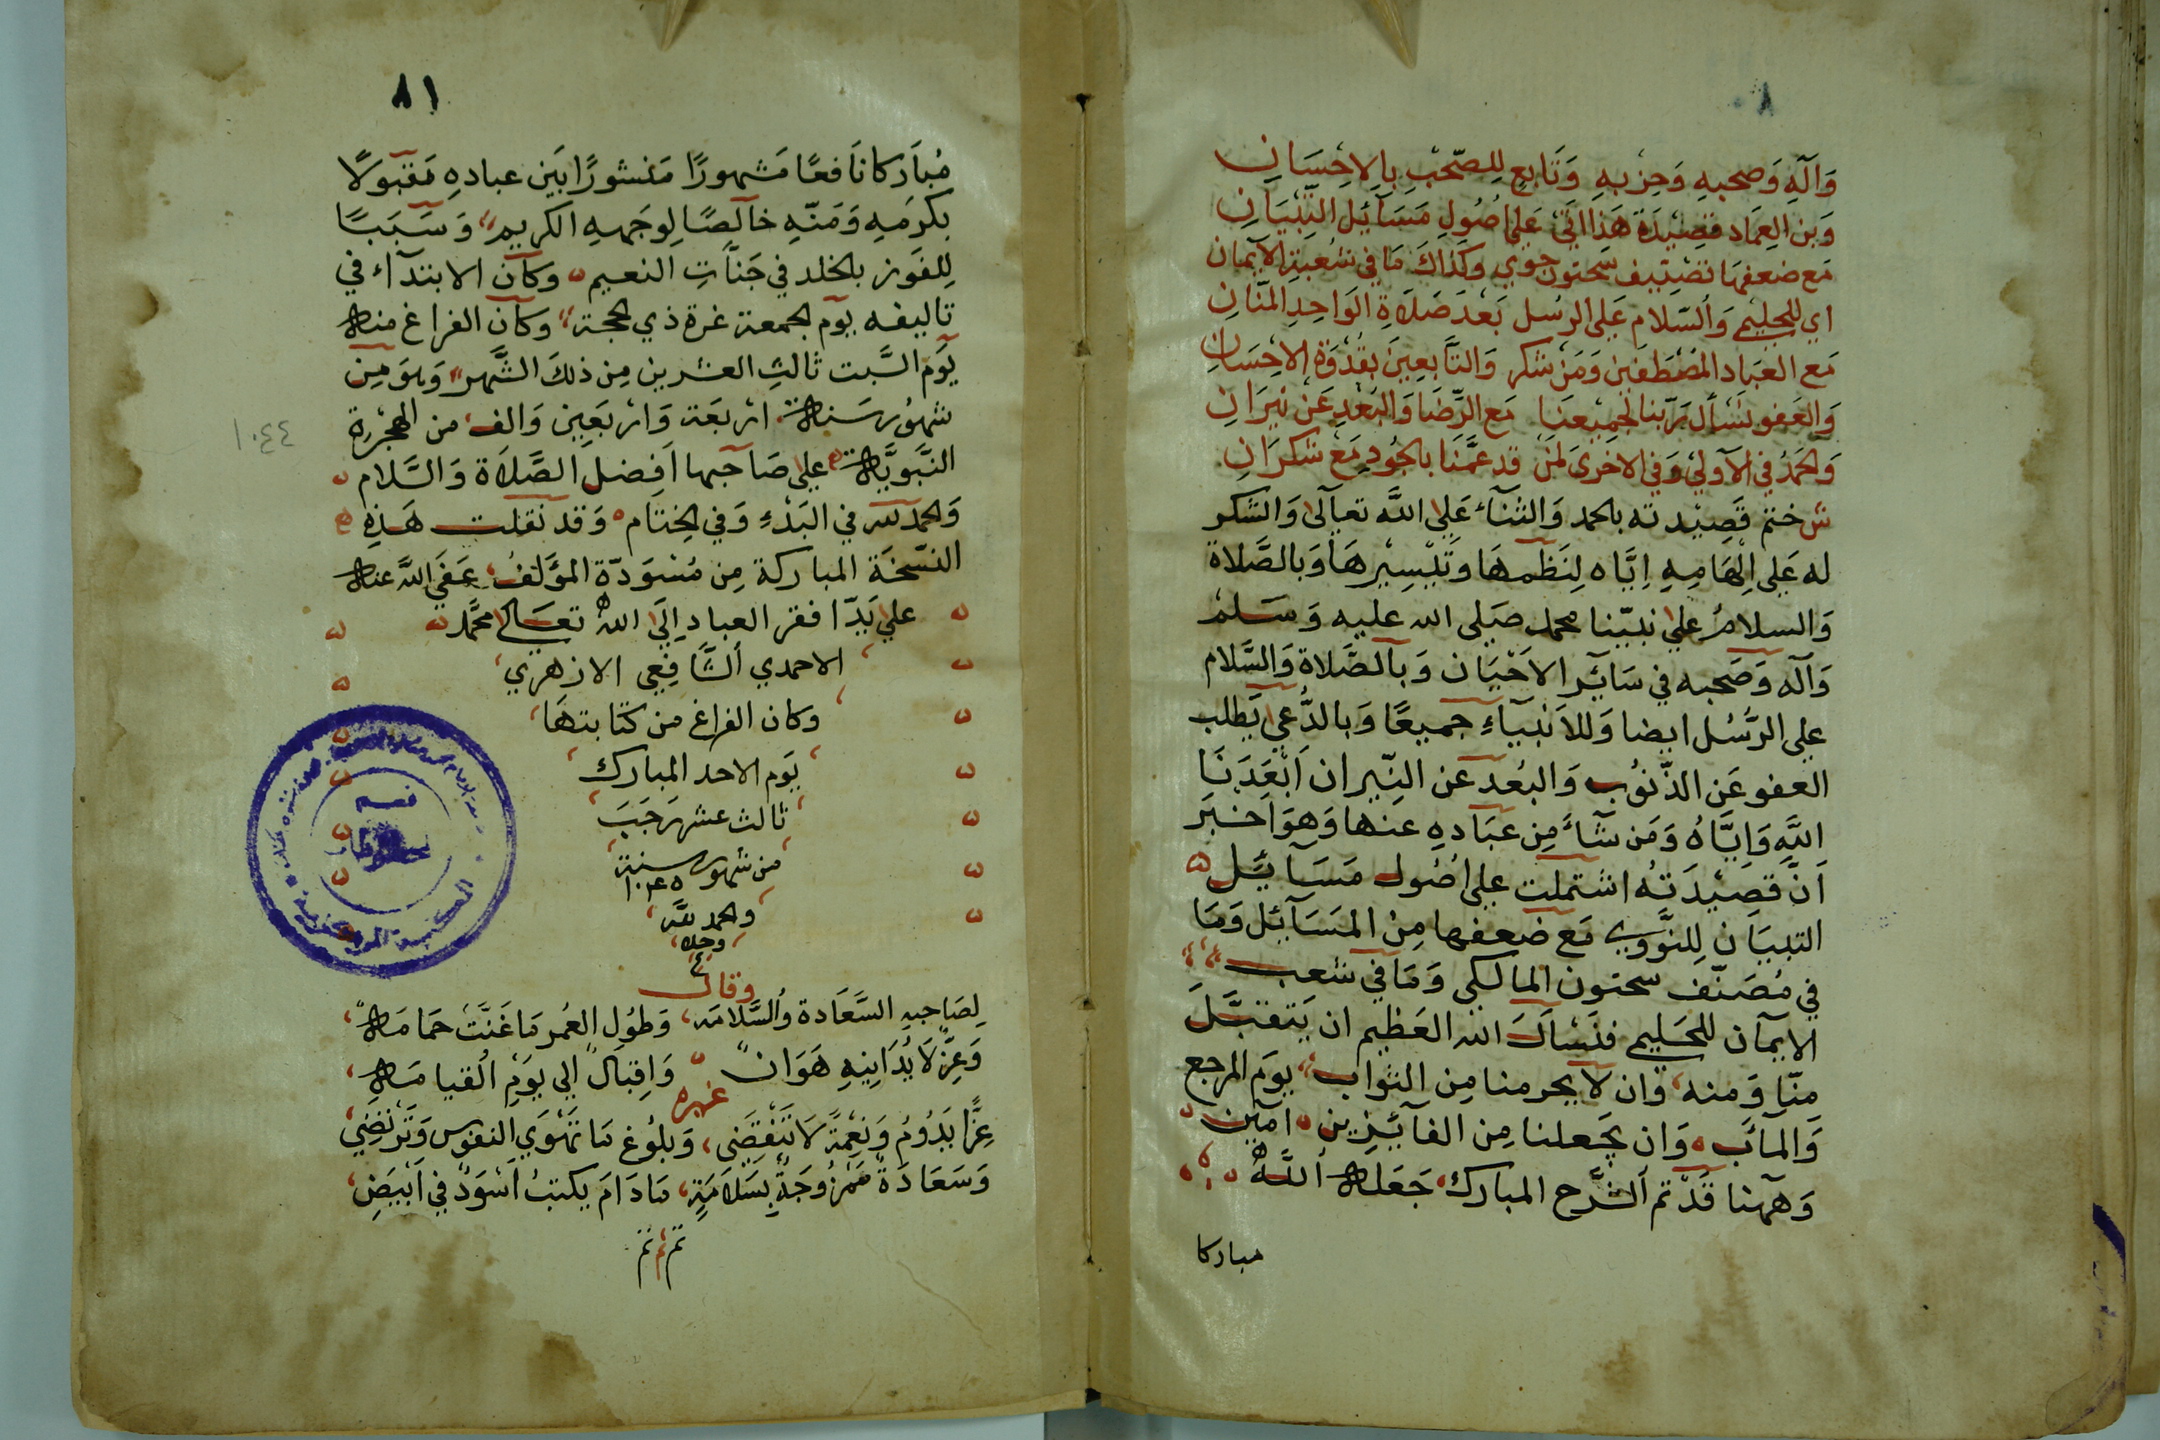 ٨٠
وَآلِهِ وَصحبهِ وَحِزبهِ وَتَابعٍ لِلصّحْبِ بِالاِحْسَانِ
وَبن العِمَاد قصِيْدَة هَذا اتَىْ عَلى اصُولِ مَسَآئِل التّبْيَانِ
مَع ضعفهَا تصْنِيف سَحنون حوي وكذاكَ مَا في شعْبةِ الآيمان
اي للحليمي وَالسّلام عَلى الرسُل بَعْدَ صَلاةِ الوَاحِدِ المنّانِ
مَع العبَاد المصْطفينَ وَمَنْ شكر وَالتّابعِينَ بقدْوَة الاِحْسَانِ
وَالعَفو نسْأل رَبّنا لجمِيعنَا مَع الرّضَا وَالبُعْدِ عَنْ نيْرَانِ
وَالحمَدُ في الآولي وَفي الاخرىَ لمَنْ قد عمَّنَا بالجُودِ مَعْ شكرَانِ
ش ختم قَصِيْدته بالحمد وَالثنآء عَلي اللّه تعَآلىَ وَالشكر
له عَلى اِلْهَامِهِ اِيَّاه لِنَظْمهَا وتَيْسِيْرهَا وَبالصَّلاة
وَالسلامُ علي نبيّنا محمد صَلى الله عليه وَسَلم
وَآله وَصَحبه في سَائر الاَحْيَان وَبالصَّلاة وَالسَّلام
علي الرُّسُل ايضا وَللاَنبيَآءِ جميعًا وَبالدُّعي يَطلب
العفو عَن الذّنوُب وَالبعُد عن النّيران اَبْعَدَنَا
اللّه وَاِيَّاهُ وَمَن شآءَ مِن عبَادهِ عنها وَهوَ اَخبَر
اَنّ قصِيْدَتهُ اشتملت علي اصُول مَسَآئل
التبيَان لِلنَّوَوي مَع ضعفها مِنْ المسَآئل وَمَا
في مُصَنّف سحنون المالكي وَمَا في شعب
الايمآن للحَليمي فنسْأل الله العَظيم ان يَتقبَّلَ
منّا وَمنه وَان لاَ يحرمنا مِن الثواب يومَ المرجع
وَالمآب وَان يجَعلنا مِن الفآئزين امين
وَههُنا قَدْ تم الشّرح المبارك جَعَله اللّهُ
مباركا
٨١
مُبَاَركا نَافعًا مَشهورًا مَنشورًا بَيَن عبادهِ مَقبولًا
بكرَمهِ وَمَنّهِ خآلصًا لِوجَههِ الكريم وَسَبَبًا
لِلفَوز بالخلد في جَنّاَتِ النعيم وكآن الابتدآء في
تاليفه يوَم الجمعة غرة ذي الحجة وَكآن الفراغ منه
يوَم السَّبت ثالثِ العشرين مِن ذلكَ الشَّهر وَهوَ مِن
شهوُر سَنة ارْبعَة وَارْبَعين وَالف من الهِجْرة
النّبَويَّة علي صَاحبها افضل الصَّلاَة وَالسَّلام
وَالحمد لله في البَدْءِ وَفي الخِتَام وَقد نقلت هَذهِ
النسّخَة المباركة مِن مُسْوَدّة المؤلف عَفَي اللّه عنه
علي يَدّ افقر العباد اِلَى اللهُ تعَالى محمَّد
الاحمدي الشَّافِعِي الازهَري
وكان الفراغ من كتابتهَا
يوَم الاحد المبارك
ثالث عشر رَجَبَ
من شهور سنة
١٠٤٥
والحمد للّه
وحده
وقال
لِصَاحبهِ السَّعَادة وُالسَّلامَه وَطوُلِ العُمر مَا غَنَّتْ حَمامَه
وَعِزًّ لاَ يُدَانِيهِ هَوَانً وَاِقبَالً الي يوَمِ القيامَه
غيره
عِزًّا يَدُومُ وَنعِمْةً لاَ تَنْقَضِي وَبلوُغ مَا تهْوَي النفوس وَتَرْتَضِي
وَسَعَادَةً ممزُوجَةً بِسَلامَةٍ مَادَامَ يكتبُ اَسْوَدٌ في اَبْيَضِ
تم تم تم
١٠٤٤
قسم
المخطوطات